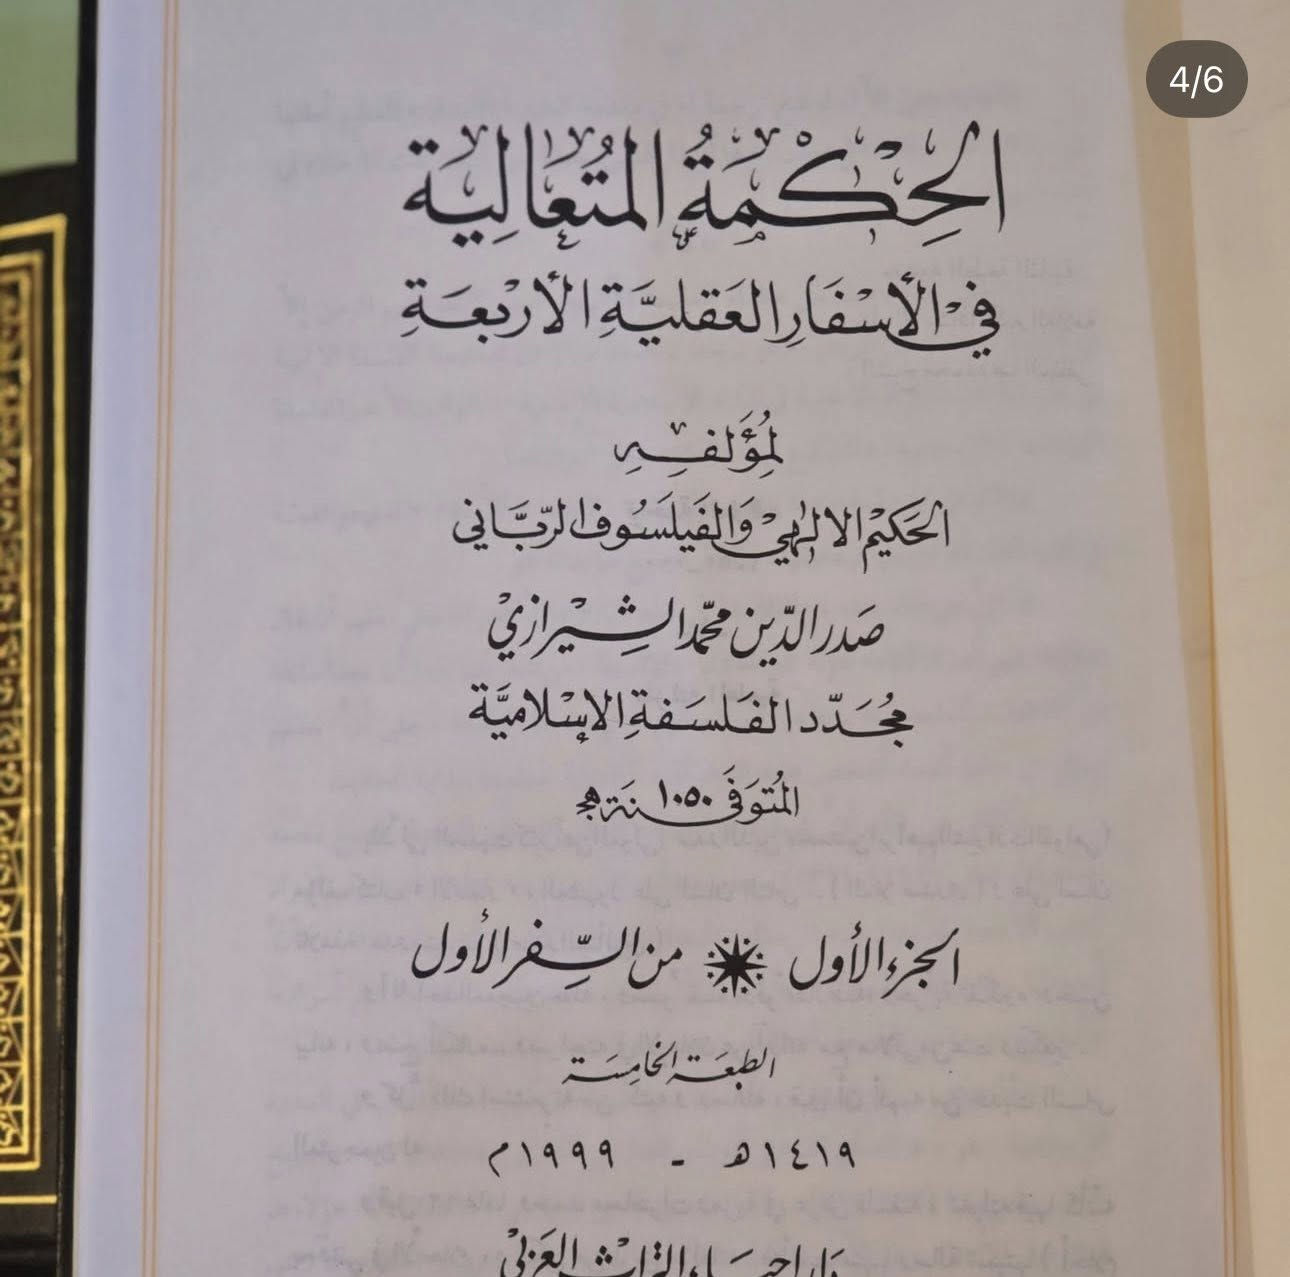 4/6
الحِكْمَةُ المتُعَالِيَة
فيْ الأسْفَارِ العَقليَّةِ الأرْبعَةِ
لمُؤَلفِهِ
الحَكيْم الالٰهيْ وَالفَيلسُوف الرّبَّاني
صَدر الدّين محمّد الشِيْرازيْ
مجُدَّد الفَلسَفةِ الإسْلاميَّة
المتُوَفَى سنَة ١٠٥٠ هـ
الجزء الأول من السِّفر الأول
الطبعَة الخامِسَة
١٤١٩ هـ - ١٩٩٩ م
دار احيَاء التراث العَرَبيْ